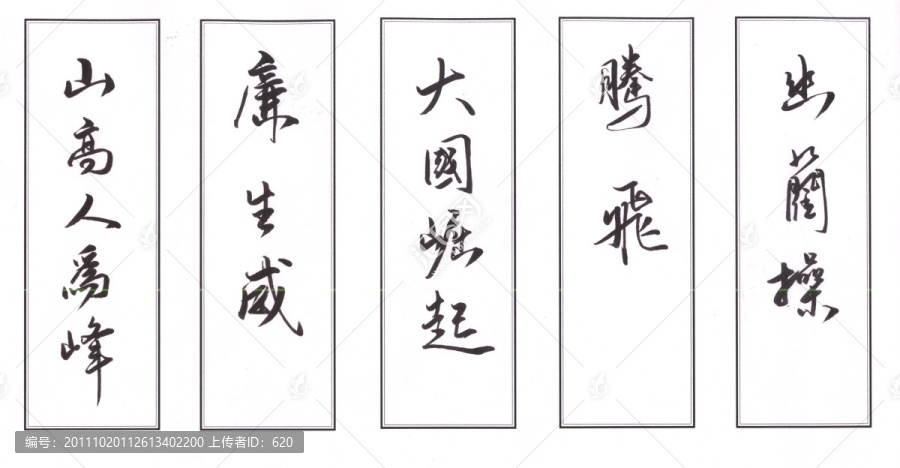 山高人為峰
廉生威
大國崛起
騰飛
幽蘭操
编号：20111020112613402200 上传者ID：620